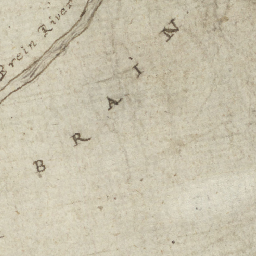 Brein River
BRAIN